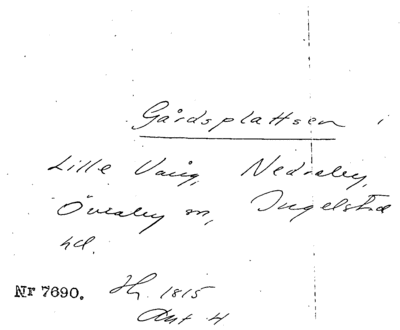 Gårdsplattsen i
Lille Vång, Nedraby,
Övraby sn, Ingelstad
hd.
Nr 7690. Hj. 1815
Akt 4